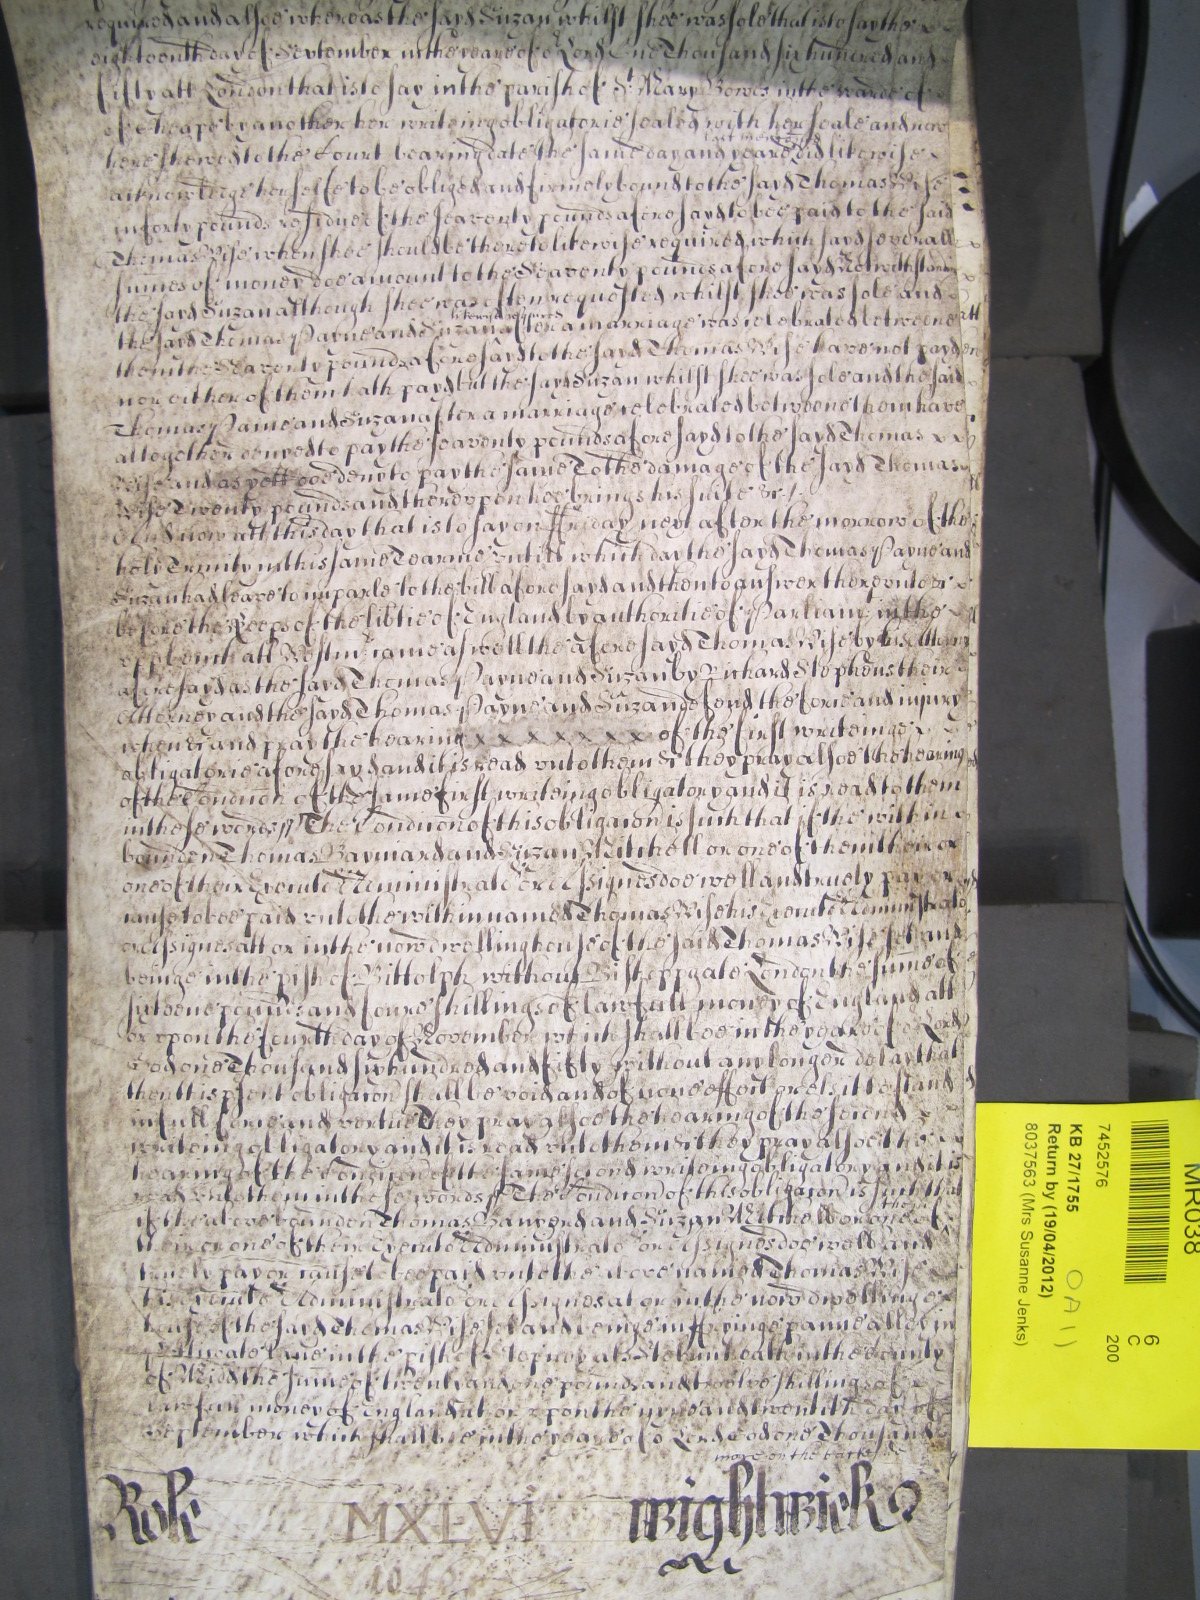 required and alsoe whereas the sayd Suzan whilst shee was sole that is to say the
eighteenth day of September in the yeare of o Lord One Thousand six hundred and
fifty att London that is to say in the parish of St Mary Bowes in the warde of
of Cheape by another her writeing obligatorie sealed with her seale and now
last mentioned
here shewed to the Court bearing date the same day and yeare did likewise
acknowledge her selfe to be obliged and firmely bound to the sayd Thomas Wise
in forty pounds residue of the seaventy pounds aforesayd to bee paid to the said
Thomas Wise when shee should be thereto likewise required which sayd severall
summes of money doe amount to the Seaventy pounds aforesayd Notwithstand
the sayd Suzan although shee was often requested whilst shee was sole and
likewise required
the sayd Thomas Payne and Suzan after a marriage was celebrated betweene
them the Seaventy pounds aforesayd to the sayd Thomas Wise have not payd
nor either of them hath payd but the sayd Suzan whilst shee was sole and the said
Thomas Paine and Suzan after a marriage celebrated betweene them have
altogether denyed to pay the seaventy pounds aforesayd to the sayd Thomas x x
Wise and as yett doe deny to pay the same To the damage of the sayd Thomas
Wise Twenty pounds and thereupon hee brings his suite &c
And now att this day that is to say on ffriday next after the morrow of the
holy Trinity in this same Tearme untill which day the sayd Thomas Payne and
Suzan had leave to imparle to the bill aforesayd and then to answer thereunto &c
before the Keepers of the libtie of England by authoritie of Parliam in the
upp bench att Westm came aswell the aforesayd Thomas Wise by his Attorny
aforesayd as the sayd Thomas Payne and Suzan by Richard Stephens their
Attorney and the sayd Thomas Payne and Suzan defend the force and injury
when &c and pray the hearing x x x x x x x x of the first writeinge
obligatorie aforesayd and it is read unto them & they pray alsoe the hearing
of the Condicon of the same first writeing obligatory and it is read to them
in these words ss The Condicon of this obligacon is such that if the within
bounden Thomas Bayniard and Suzan Mitchell or one of them their or
one of their Execut Administrato or Assignes doe well and truely pay or
cause to bee paid unto the within named Thomas Wise his Execut Administrato
or Assignes att or in the now dwelling house of the said Thomas Wise set and
beinge in the pish of Buttolph without Bishoppgate London the sume of
sixteene pounds and foure shillings of lawfull money of England att
or upon the fourth day of November which shall bee in the yeare of o Lord
God one Thousand six hundred and fifty without any longer delay that
then this psent obligacon shall be void and of none effect or els it to stand
in full force and vertue They pray alsoe the hearing of the second
writeing obligatory and it is read unto them & they pray alsoe the
hearing of the Condicon of the same second writeing obligatory and it is
read unto them in these words ss The Condicon of this obligacon is such that
if the above bounden Thomas Banyerd and Suzan Mitchell or one of
their or one of their Execut Administrato or Assignes doe well and
truely pay or cause to bee paid unto the above named Thomas Wise
his Execut Administrato or Assignes at or in the now dwellinge
house of the sayd Thomas Wise set and beinge in ffryinge panne alley in
Petticoate Lane in the pish of Stepney als Stebunheath in the County
of Midd the sume of twenty and one pounds and twelve shillings of
lawfull money of England at or upon the nyne and twentith day of
September which shall bee in the yeare of o Lord God one Thousand
more on the backside
Role MXLVI Wightwick
1046
MR038
7452576
KB 27/1755
Return by (19/04/2012)
8037563 (Mrs Susanne Jenks)
6
C
200